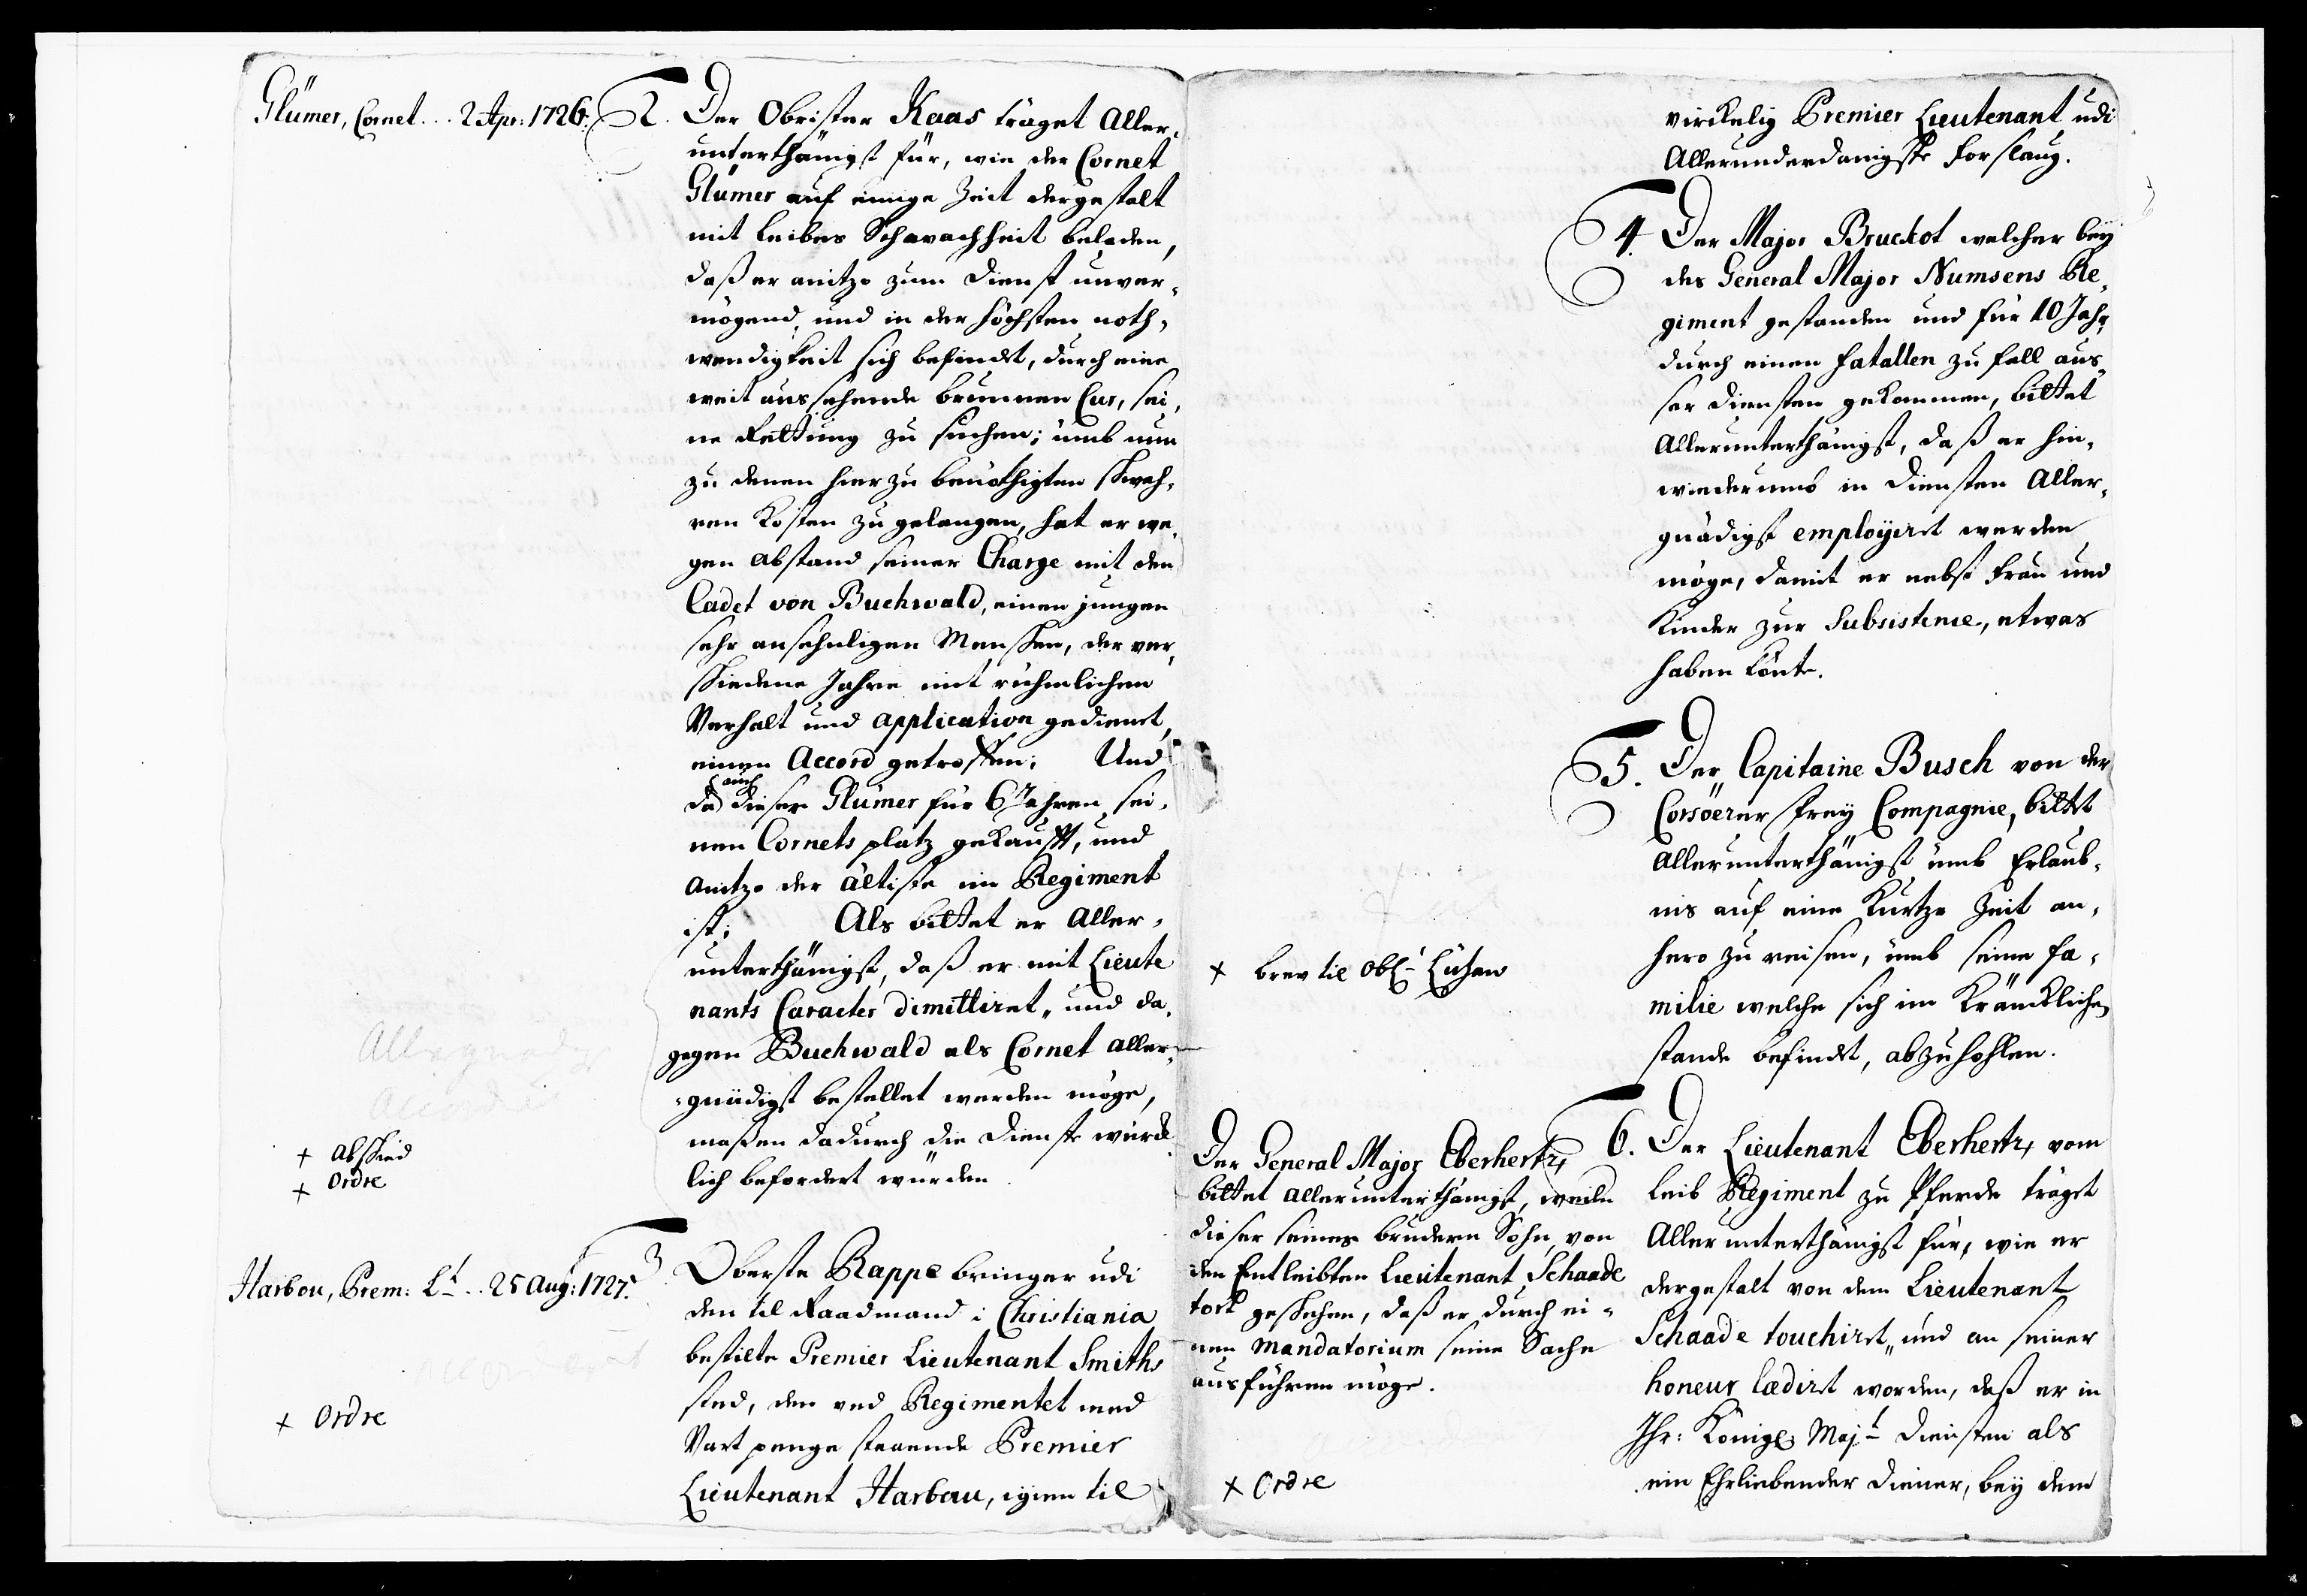 Glümer, Cornet... 2 Apr: 1726.
2. Der Obrister Kaas träget Aller-
unterthänigst für, wie der Cornet
Glümer auf einige Zeit dergestalt
mit Leibes Schwachheit beladen,
daß er anitzo zum Dienst unver-
mögend, und in der höchsten noth-
wendigkeit sich befindet, durch eine
weit aussehende brunnen Cur, sei-
ne Rettung zu suchen; umb nun
zu denen hierzu benöthigten schweh-
ren Kosten zu gelangen, hat er we-
gen abstand seiner Charge mit den
Cadet von Buchwald, einen jungen
sehr ansehnligen Menschen, der ver-
schiedene Jahre mit rühmlichen
Verhalt und application gedienet,
einen Accord getroffen; Und
da auch dieser Glümer für 6 Jahren sei-
nen Cornets platz gekaufft, und
Anitzo der ältiste im Regiment
ist; Als bittet er Aller-
unterthänigst, daß er mit Lieute
nants Caracter dimittiret, und da-
gegen Buchwald als Cornet aller-
gnädigst bestellet werden möge,
maßen dadurch die Dienste würck-
lich befordert würden.
Allergnädigst
Accordiret
+ Abschied
+ Ordre
Harbou, Prem: Lt... 25 Aug: 1727.
3 Oberste Rappe bringer udi
den til Raadmand i Christiania
bestilte Premier Lieutenant Smiths
sted, den ved Regimentet med
Vart penge staaende Premier
Lieutenant Harbou, igien til
+ Ordre
virckelig Premier Lieutenant udi
Allerunderdanigste forslaug.
4. Der Major Bruckot welcher bey
des General Major Numsens Re-
giment gestanden und für 10 Jahr
durch einen fatallen zu fall aus-
ser Diensten gekommen, bittet
Allerunterthänigst, daß er hin-
wiederumb in Diensten Aller-
gnädigst employiret werden
möge, damit er nebst Frau und
Kinder zur Subsistence, etwas
haben könte.
5. Der Capitaine Busch von der
Corsöerer Frey Compagnie, bittet
allerunterthänigst umb Erlaub-
nis auf eine Kurtze Zeit an-
hero zu reisen, umb seine fa-
milie welche sich im Kräncklichen
stande befindet, abzuhohlen.
+ brev til Obl: Lützow
6. Der Lieutenant Eberhertz, vom
Leib Regiment zu Pferde träget
Allerunterthänigst für, wie er
dergestalt von dem Lieutenant
Schaade touchiret, und an seiner
honeur lædiret worden, daß er in
Ihr: Königl. Majt Diensten als
ein Ehrliebender Diener, bey dem
Der General Major Eberhertz,
bittet allerunterthänigst, weiln
dieser seines brudern Sohn, von
den Entleibten Lieutenant Schaade
tort geschehen, daß er durch ei-
nen Mandatorium seine Sache
ausführen möge.
+ Ordre